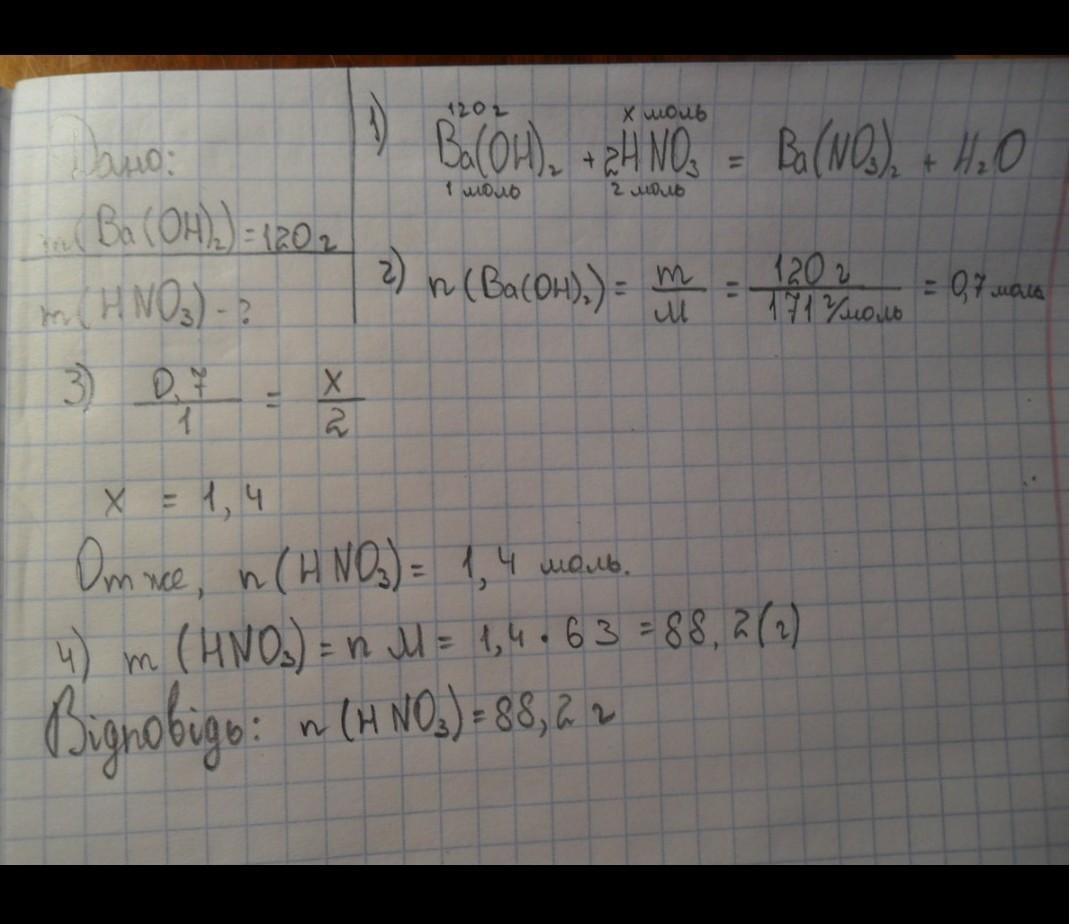 Дано:
m(Ba(OH)₂)=120г
m(HNO₃)-?
1)
120г x моль
Ba(OH)₂ + 2HNO₃ = Ba(NO₃)₂ + H₂O
1 моль 2 моль
2) n(Ba(OH)₂) = m/M = 120 г/171 г/моль = 0,7 моль
3) 0,7/1 = x/2
x = 1,4
Отже, n(HNO₃) = 1,4 моль.
4) m (HNO₃) = n M = 1,4 · 63 = 88,2(г)
Відповідь: n(HNO₃)=88,2 г